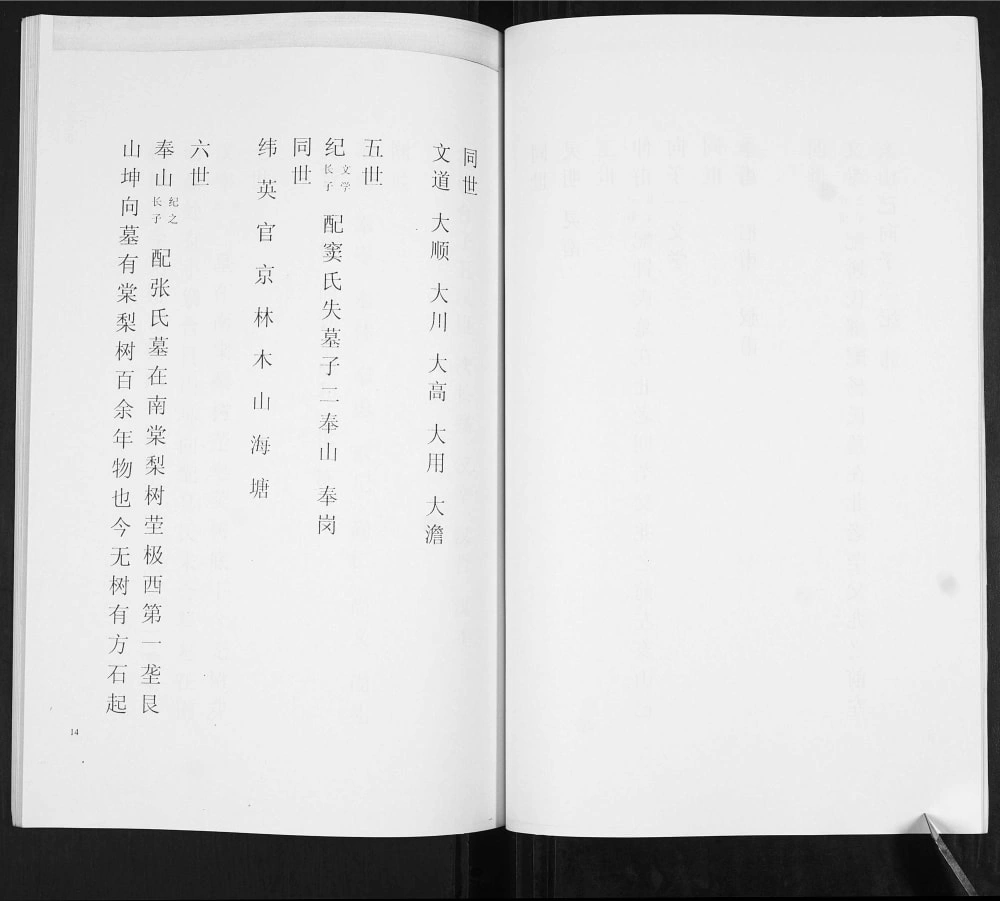 同世
文道 大顺 大川 大高 大用 大澹
五世
纪 文学长子 配窦氏失墓子二奉山 奉岗
同世
纬 英 官 京 林 木 山 海 塘
六世
奉山 纪之长子 配张氏墓在南棠梨树茔极西第一垄艮
山坤向墓有棠梨树百余年物也今无树有方石起
14